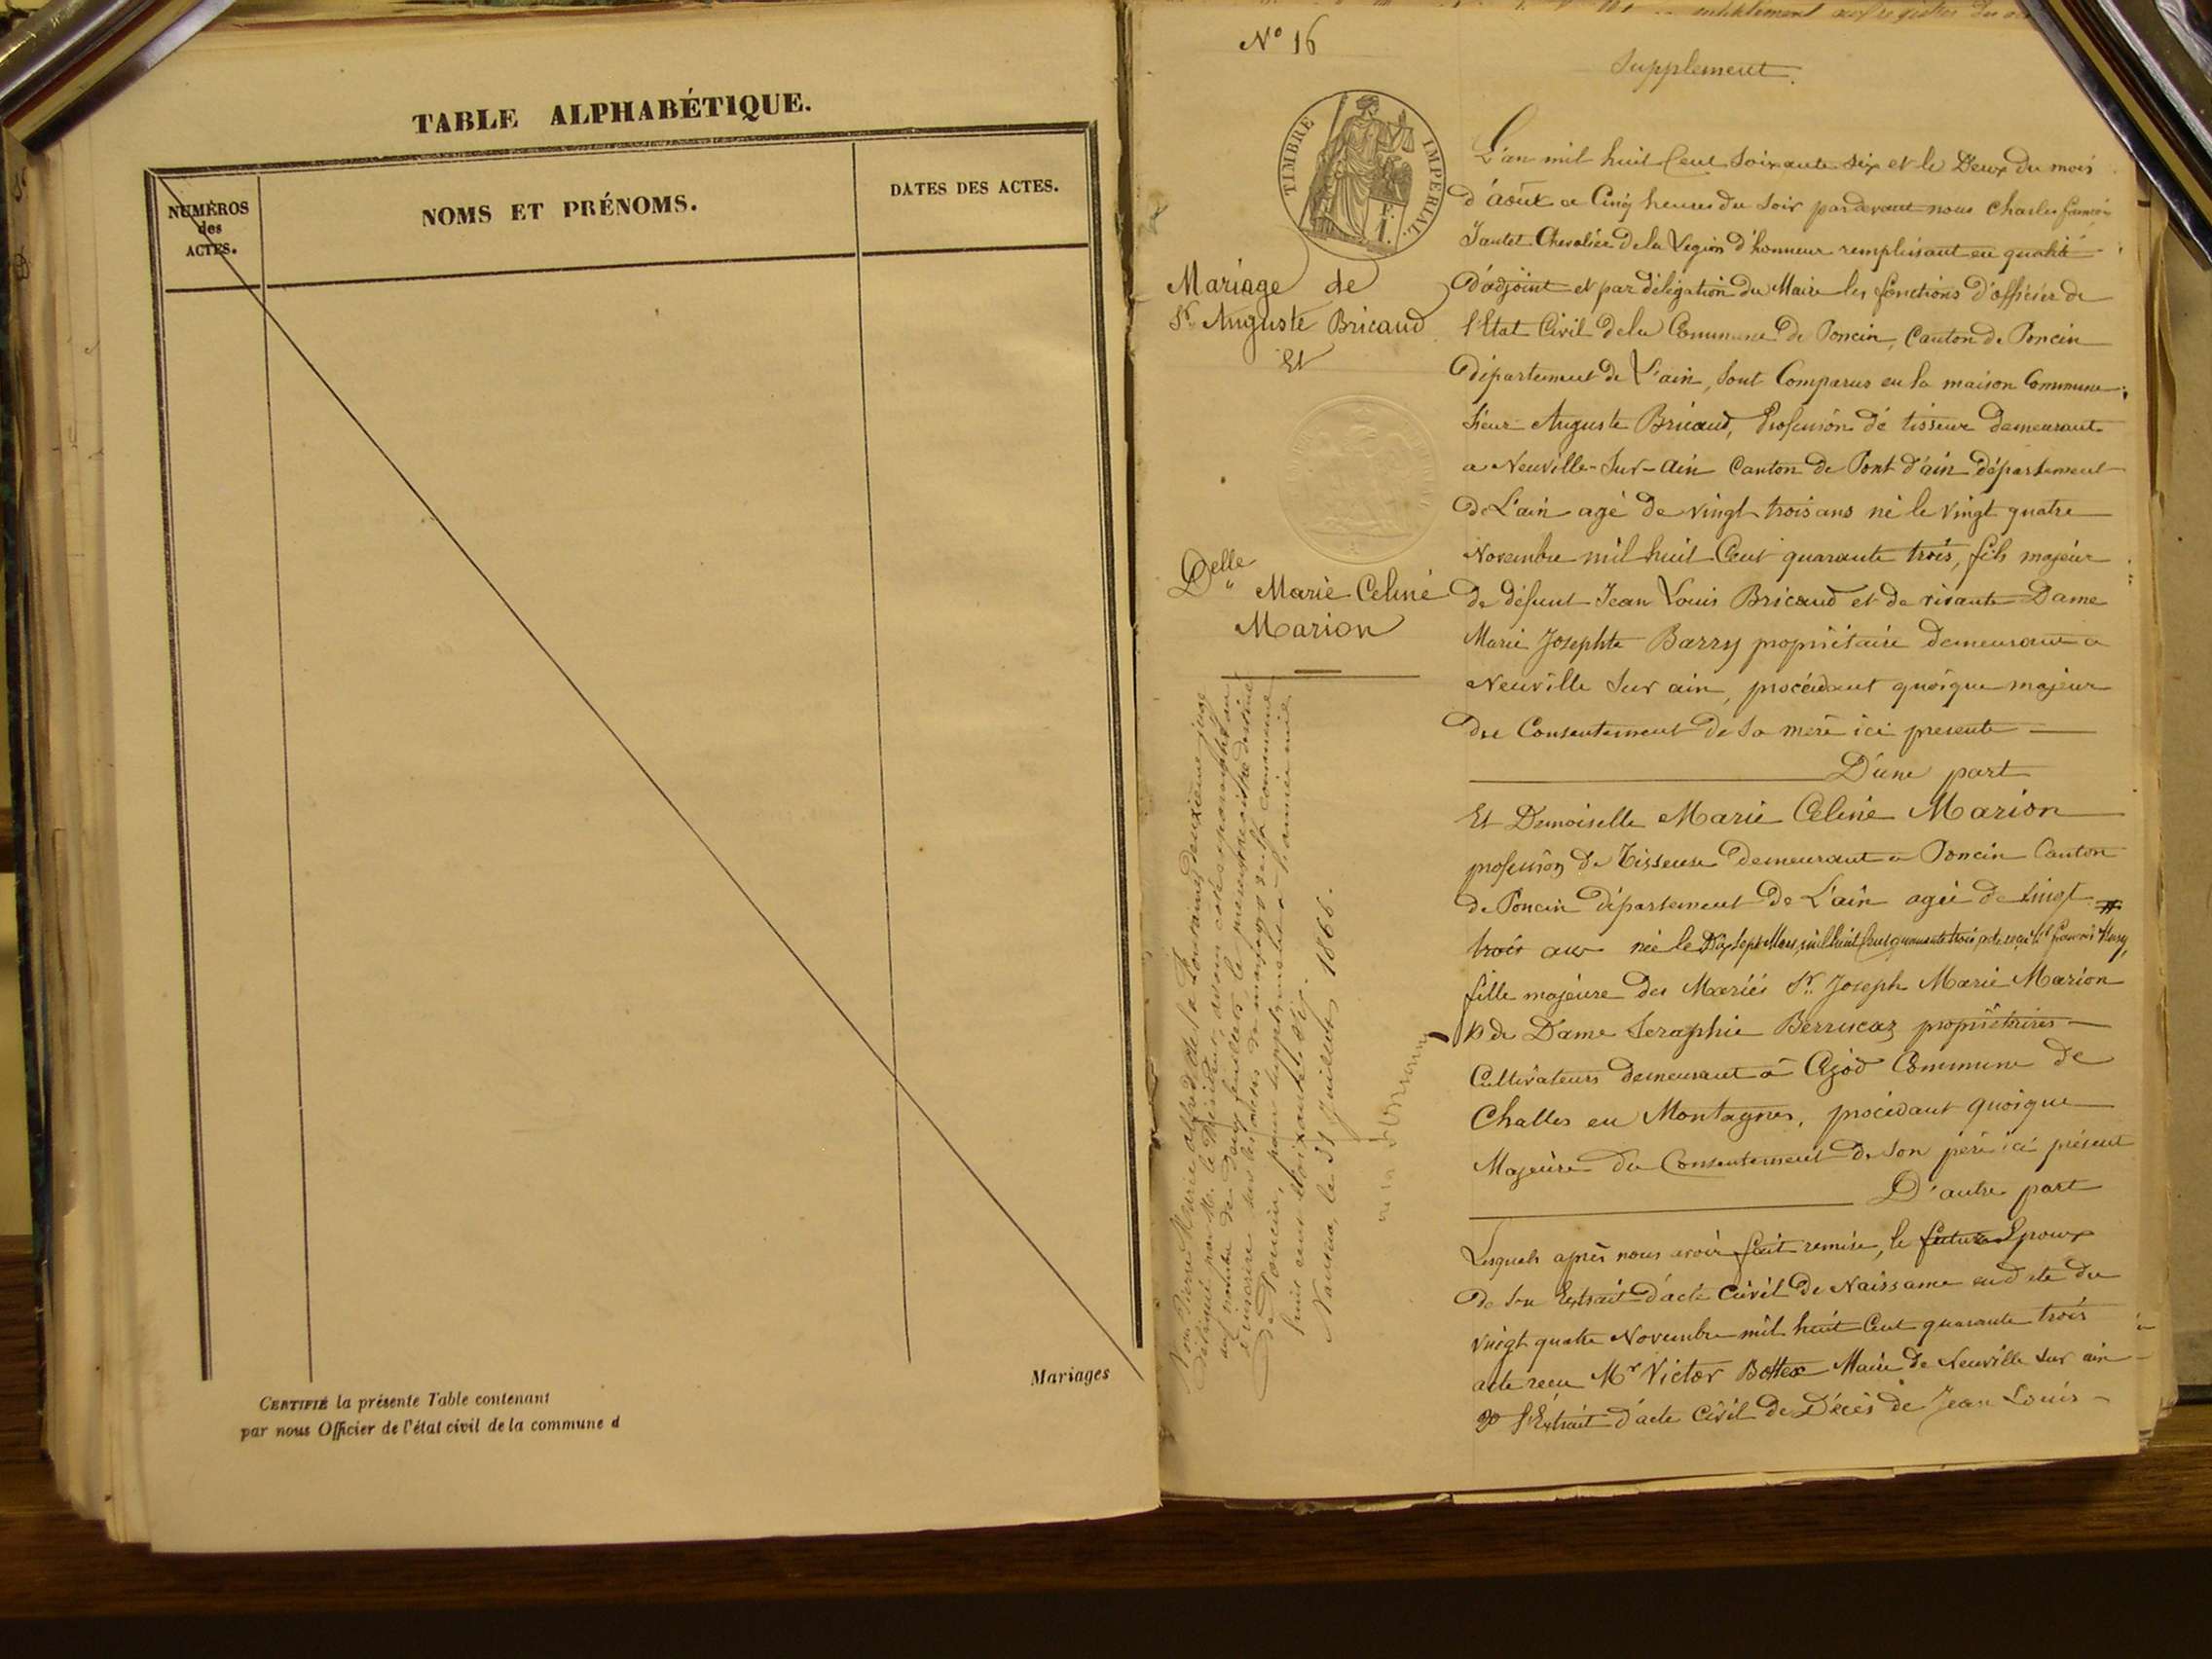 TABLE ALPHABÉTIQUE.
NUMÉROS
des
ACTES.
NOMS ET PRÉNOMS.
DATES DES ACTES.
Mariages
CERTIFIÉ la présente Table contenant
par nous Officier de l'état civil de la commune d
N° 16
Supplement.
TIMBRE IMPERIAL
1 F.
Mariage de
Sr. Auguste Bricaud
Et
Delle Marie Celine
Marion
L'an mil huit Cent Soixante Six et le Deux du mois
d'Août a Cinq heures du Soir pardevant nous Charles
Jantet Chevalier de la Legion d'honneur remplissant en qualité
D'adjoint et par délégation du Maire les fonctions d'officier de
l'Etat Civil de la Commune de Poncin, Canton de Poncin
Département de L'ain, Sont Comparus en la maison Commune
Sieur Auguste Bricaud, Profession de tisseur demeurant
a Neuville-Sur-Ain Canton de Pont d'ain département
De L'ain agé de vingt trois ans né le vingt quatre
Novembre mil huit Cent quarante trois, fils majeur
de défunt Jean Louis Bricaud et de vivante Dame
Marie Josephte Barry propriétaire demeurant a
Neuville Sur ain, procédant quoique majeur
du Consentement de Sa mère ici presente
D'une part
Et Demoiselle Marie Celine Marion
profession de Tisseuse demeurant a Poncin Canton
de Poncin département de L'ain agée de vingt
trois ans née le Dix Sept Mars, mil huit Cent quarante trois, acte reçu
fille majeure des Mariés Sr. Joseph Marie Marion
& de Dame Seraphie Berrucaz propriétaires
Cultivateurs demeurant à Cijod Commune de
Challes en Montagnes, procédant quoique
Majeure du Consentement de Son père ici présent
D'autre part
Lesquels après nous avoir fait remise, le futur Epoux
De Son Extrait d'acte Civil de Naissance en date du
vingt quatre Novembre mil huit Cent quarante trois
acte reçu Mr Victor Bottex Maire de Neuville Sur ain
2° l'Extrait d'acte Civil de Décès de Jean Louis
Nous Pierre Marie Alfred de la deuxième juge
délégué par M. le Président, avons coté & paraphé au
au nombre de deux feuillets le présent registre destiné
à inscrire tous les actes de mariage de la commune
de Poncin, pour supplément à l'année mil
huit cent soixante Six.
Nantua, le 31 Juillet 1866.